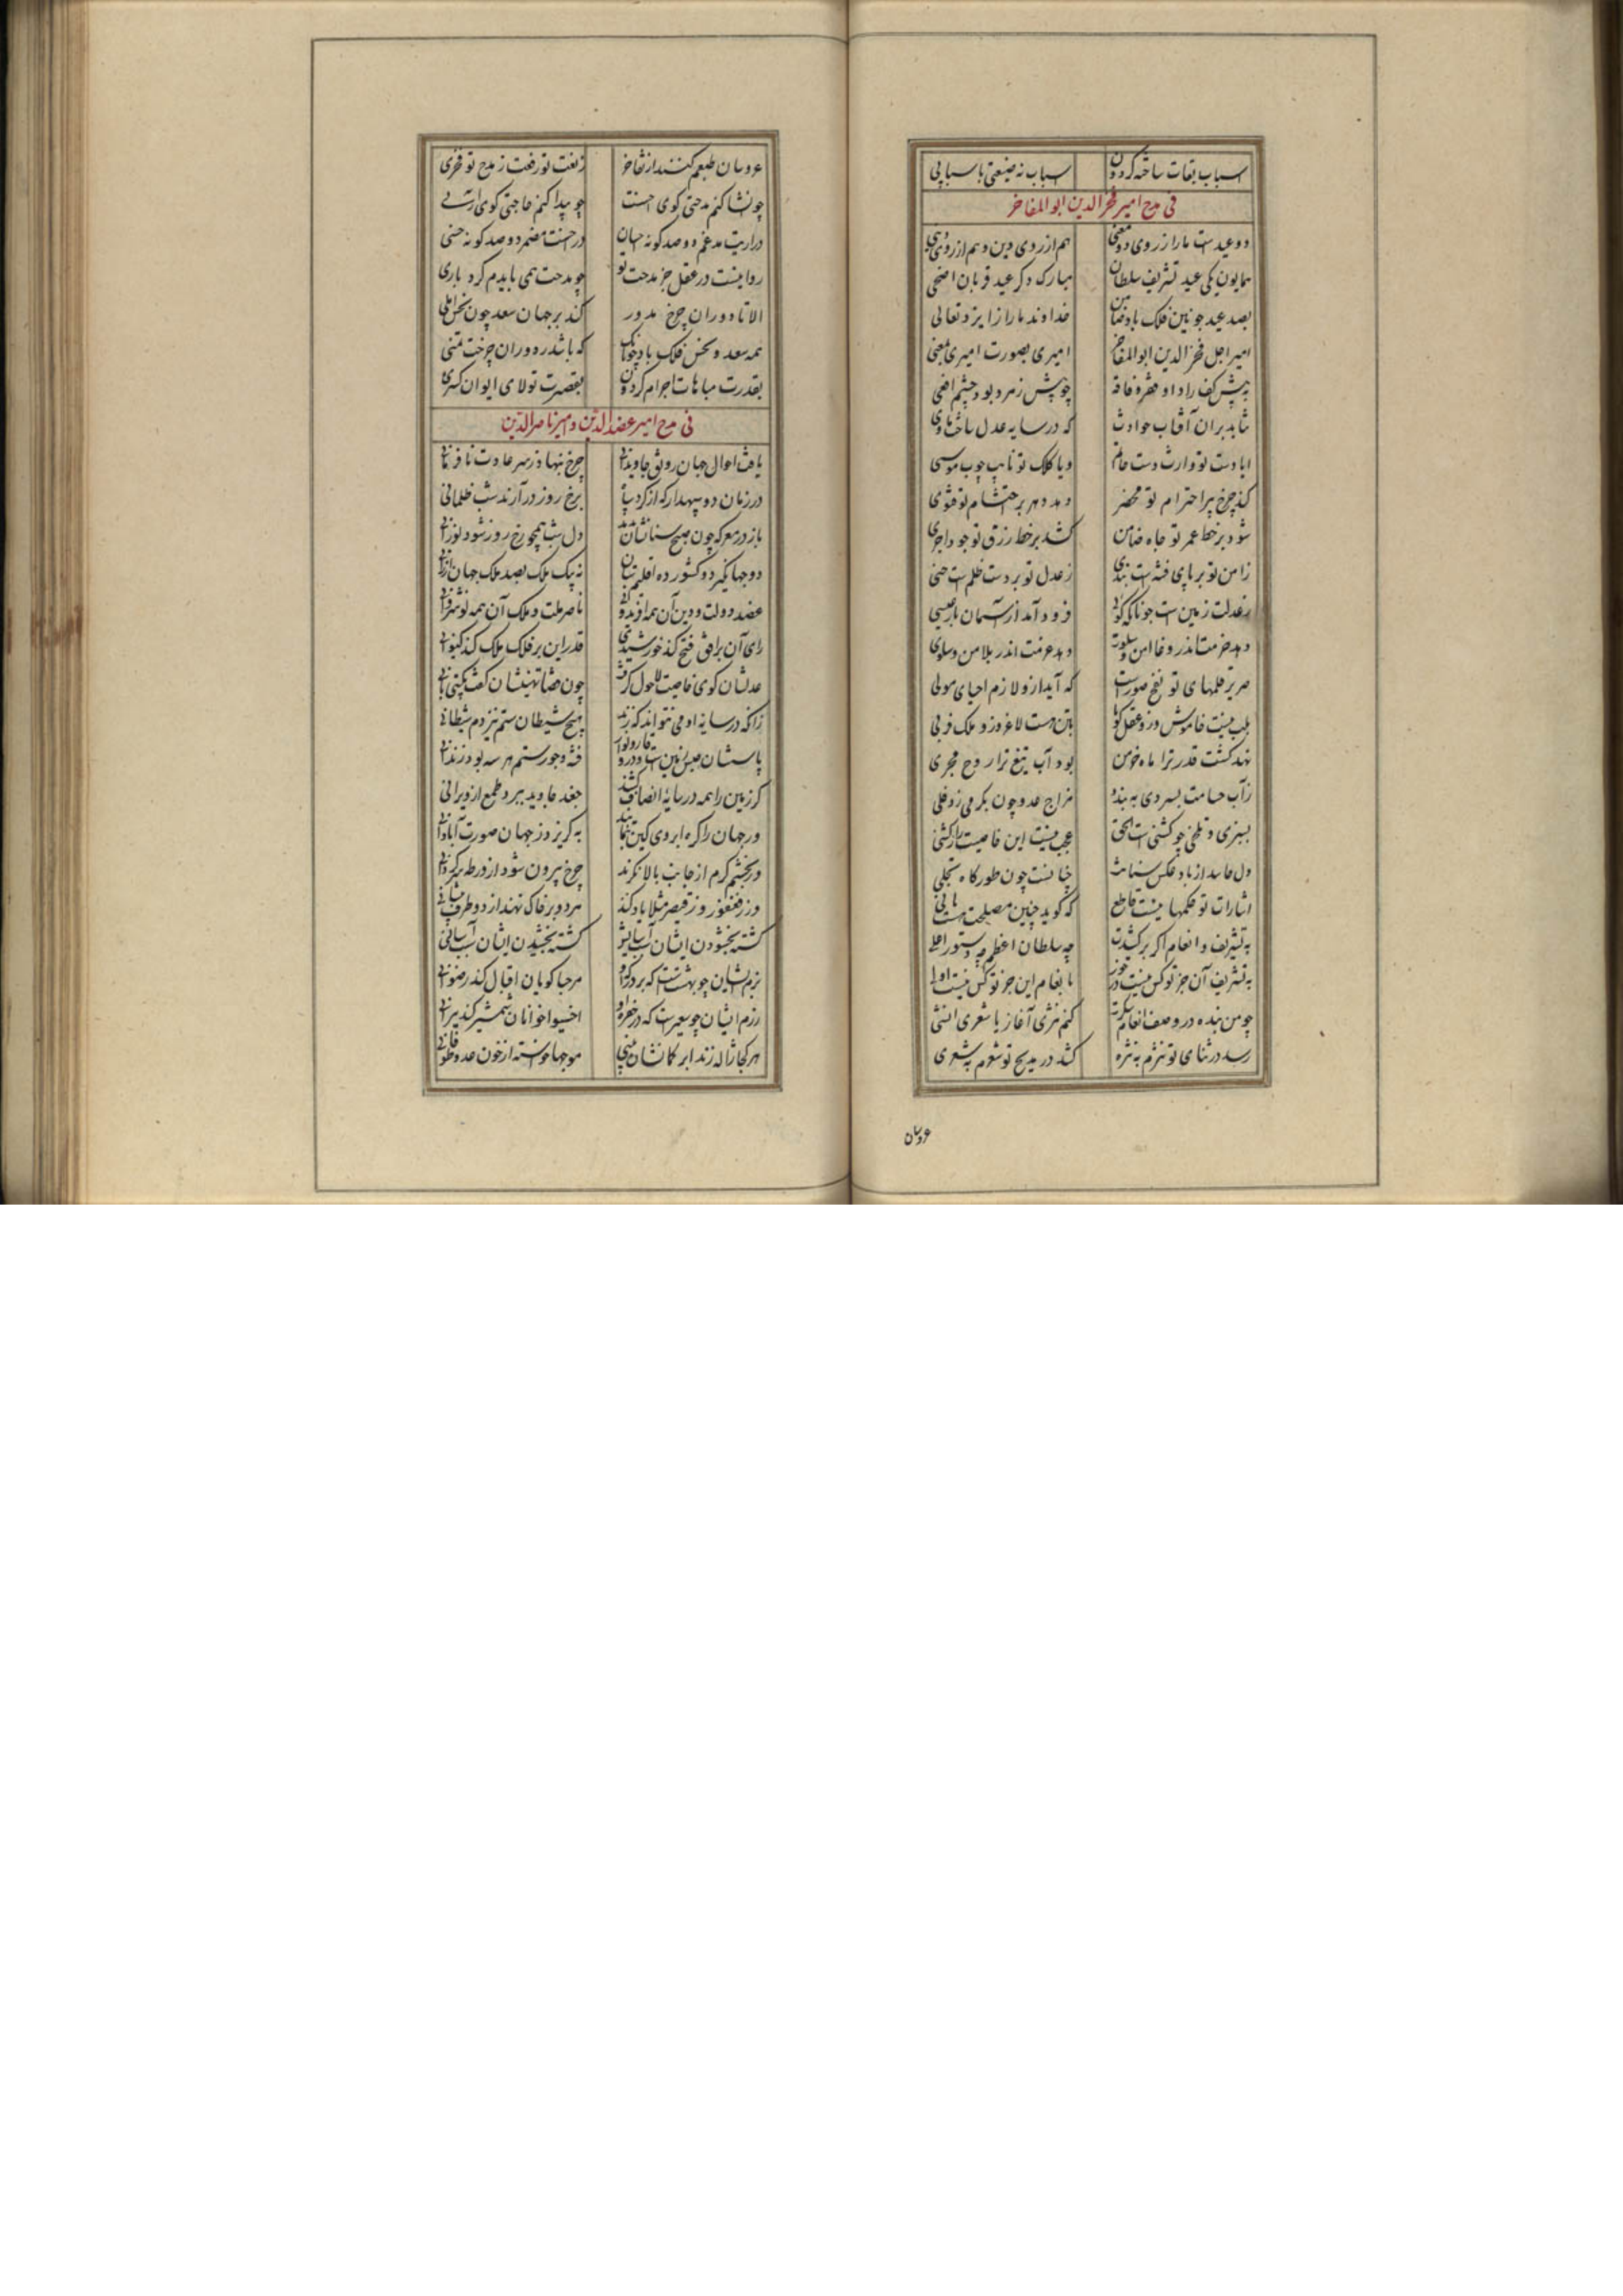 اسباب بقات ساخته گردون اسباب نه صنعتی با سبابی
فی مدح امیر فخرالدین ابوالمفاخر
دو عیدست ما را ز روی دو معنی هم از روی دین و هم از روی دنیی
همایون یکی عید تشریف سلطان مبارک دگر عید قربان اضحی
بصد عید چونین فلک باد ضامن خداوند ما را ز ایزد تعالی
امیر اجل فخرالدین ابوالمفاخر امیری بصورت امیری بمعنی
به پیش کف راد او فقر و فاقه چو پیش زمرد بود چشم افعی
نتابد بران آفتاب حوادث که در سایه عدل او ساخت ماوی
ایا دست تو وارث دست حاتم و یا کلک تو نایب چوب موسی
کند چرخ بر احترام تو محضر دهد دهر بر احتشام تو فتوی
شود بر خط عمر تو جاه ضامن کشد بر خط رزق تو جود اجری
ز امن تو بر پای فتنه ست بندی ز عدل تو بر دست ظلم ست حنی
ز عدلت زمین ست چونانکه گوئی فرود آمد از آسمان باز عیسی
دهد حزمت اندر وغا امن و سلوت دهد عزمت اندر بلا من و سلوی
صریر قلمهای تو نفخ صورست که آید ازو لازم احیای موتی
بلب نیست خاموش وزو عقل گویا بتن هست لاغر وزو ملک فربی
نهد کشت قدر ترا ماه خرمن بود آب تیغ ترا روح مجری
ز آب حسامت بسردی ببندد مزاج عدو چون بکرمی ز دفلی
بسبزی و تلخی چو کشنیست الحق عجب نیست این خاصیت را ز کشنی
دل حاسد از باد عکس سنانت چنانست چون طور گاه تجلی
اشارات تو حکمها نیست قاطع که گوید چنین مصلحت هست یا نی
به تشریف و انعام اگر برکشیدت چه سلطان اعظم چه دستور اعلی
به تشریف آن جز تو کس نیست در خور بانعام این جز تو کس نیست اولی
چو من بنده در وصف انعام و شکرت کنم نثری آغاز یا شعری انشی
رسد در ثنای تو نثرم به نثره کشد در مدیح تو شعرم به شعری
عروسان
عروسان طبعم کنند از تفاخر ز نعت تو رفعت ز مدح تو فخری
چو انشا کنم مدحتی گوی احسنت چو پیدا کنم حاجتی گوی آری
در آریت مدغم دو صد گونه احسان در احسنت مضمر دو صد گونه حسنی
روا نیست در عقل جز مدحت تو چو مدحت همی بایدم کرد باری
الا تا دوران چرخ مدور کند بر جهان سعد چون نحس املی
همه سعد و نحس فلک باد چونانک که باشد ز دوران چرخت تمنی
بقدرت مباهات اجرام گردون بقصرت تولای ایوان کسری
فی مدح امیر عضدالدین و امیر ناصرالدین
یافت احوال جهان رونق جاویدانی چرخ بنهاد ز سر عادت نافرمانی
در زمان دو سپهدار که از گرد سپاه بر رخ روز در آرند شب ظلمانی
باز در معرکه چون صبح سنانشان بدمد دل شب همچو رخ روز شود نورانی
دو جهانگیر دو کشور ده اقلیم ستان نه یک ملک بصد ملک جهان ارزانی
عضد دولت و دین آن همه افریدونی ناصر ملت و ملک آن همه نوشروانی
رای آن بر افق فتح کند خورشیدی قدر این بر فلک ملک کند کیوانی
عدلشان گوی خاصیت لاحول گرفت چون قضا تهنیتشان گفت بگیتی بانی
زانکه در سایه او می نتواند که زند هیچ شیطان ستم نیز دم شیطانی
پاسشان حبس زمین ست و درو قارون وار فتنه و جور و ستم هر سه بود زندانی
گر زمین را همه در سایه انصاف کشند جغد جاوید ببرد طمع از ویرانی
ور جهان را گره ابروی کین بنمایند بگریزد ز جهان صورت آبادانی
ور بچشم کرم از جانب بالا نگرند چرخ بیرون شود از ورطه سرگردانی
ور ز فغفور و ز قیصر مثلا یاد کند هر دو بر خاک نهند از دو طرف پیشانی
کشته بخشودن ایشان آسایش کشته بخشیدن ایشان سبب آسانی
بزم ایشان چو بهشتست که بر درگه او مرحبا گویان اقبال کند رضوانی
رزم ایشان چو سعیرست که در حفره او اخسئوا خوانان شمشیر کند نیرانی
هر کجا ژاله زند ابر کمانشان بینی موجها خاسته از خون عدو طوفانی